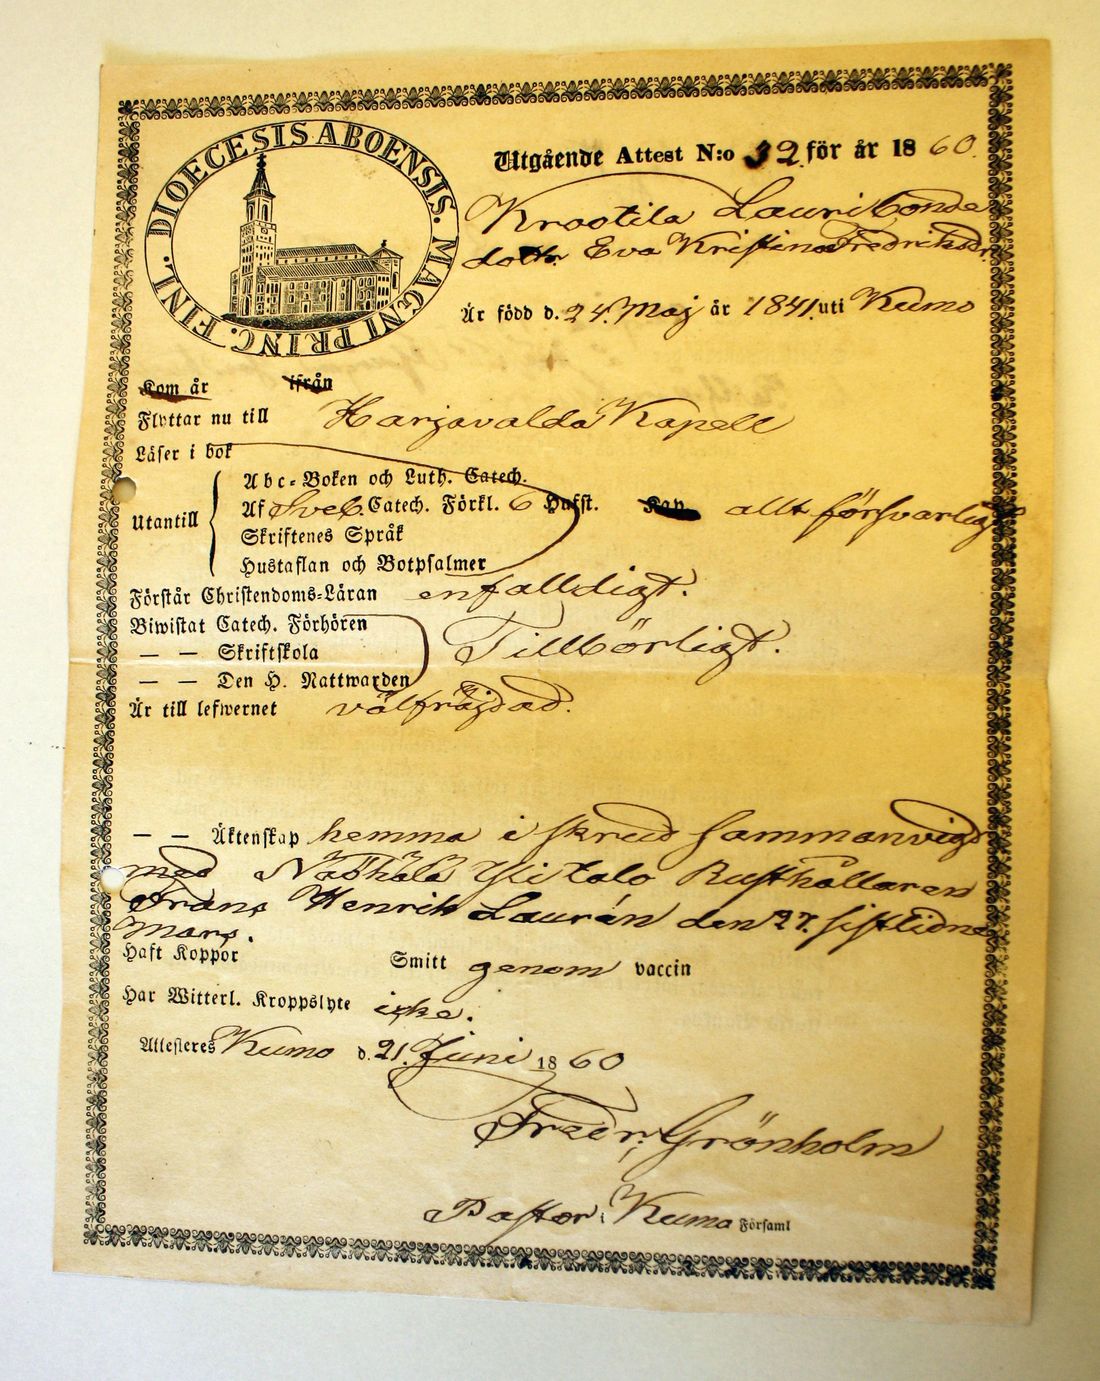 DIOECESIS ABOENSIS. MAGNI PRINC. FINL.
Utgående Attest N:o 32 för år 1860.
Krootila Lauri bonde
dottr Eva Kristina Fredriksdr
Är född d. 24. Maj år 1841. uti Kumo
Kom år ifrån
Flyttar nu till Harjavalda Kapell
Läser i bok
Abc-Boken och Luth. Catech.
Utantill Af Sveb. Catech. Förkl. 6 Hufst. Kap. allt försvarligt
Skriftenes Språk
Hustaflan och Botpsalmer
Förstår Christendoms-Läran enfalldigt.
Biwistat Catech. Förhören
— — Skriftskola Tillbörligt.
— — Den H. Nattwarden
Är till lefwernet välfrägdad.
— — Äktenskap hemma i skrud sammanvigd
med Näyhälä Yli talo Rusthållaren
Frans Henrik Laurén den 27. sistlidne
Mars.
Haft Koppor Smitt genom vaccin
Har Witterl. Kroppslyte icke.
Attesteres Kumo d. 21. Juni 1860
Fredr. Grönholm
Pastor i Kumo Församl